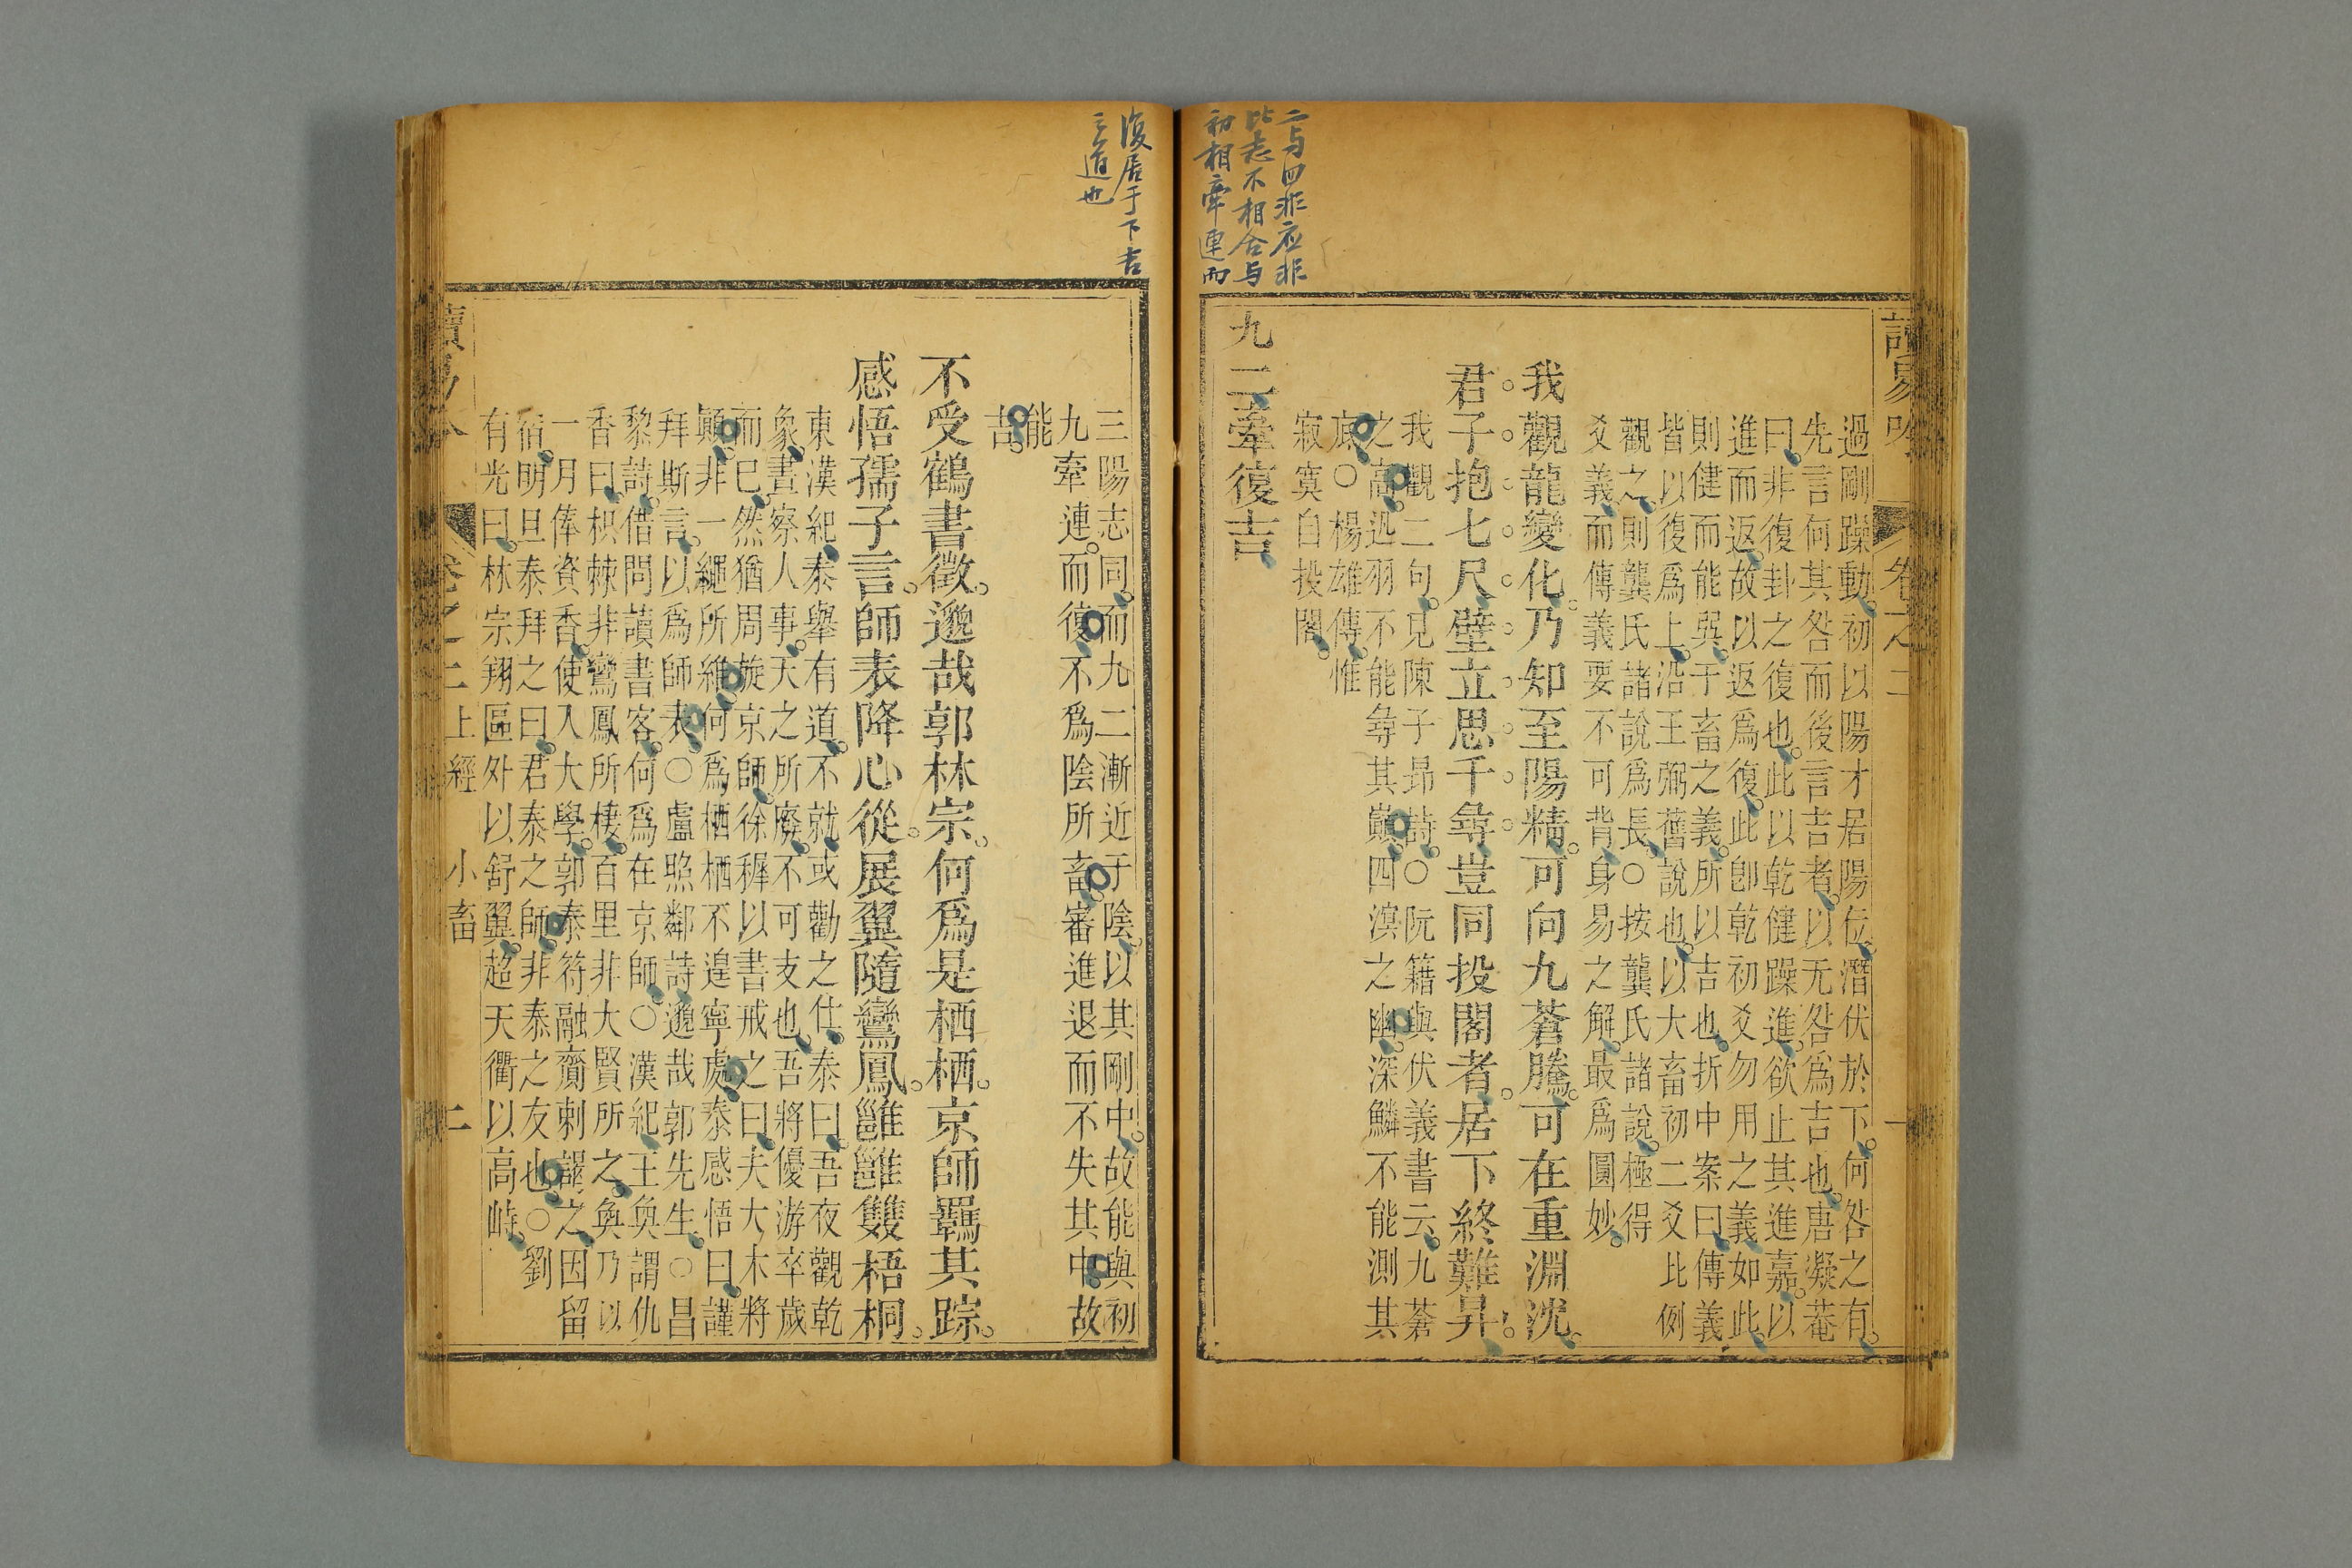 二与四非应非
比志不相合与
初相牽連而
讀易吟
卷之二
過剛躁動初以陽才居陽位潛伏於下何咎之有
先言何其咎而後言吉者以无咎爲吉也唐凝菴
曰非復卦之復也此以乾健躁進欲止其進嘉以
進而返故以返爲復此卽乾初爻勿用之義如此
則健而能巽于畜之義所以吉也折中案曰傳義
皆以復爲上沿王弼舊說也以大畜初二爻比例
觀之則龔氏諸說爲長○按龔氏諸說極得
爻義而傳義要不可背身易之解最爲圓妙
我觀龍變化乃知至陽精可向九蒼騰可在重淵沈
君子抱七尺壁立思千尋豈同投閣者居下終難昇
我觀二句見陳子昂詩○阮籍與伏義書云九蒼
之高迅羽不能尋其巔四溟之幽深鱗不能測其
底○楊雄傳惟
寂寞自投閣
九二牽復吉
復居于下吉
之道也
三陽志同而九二漸近于陰以其剛中故能與初
九牽連而復不爲陰所畜審進退而不失其中故
能
吉
不受鶴書徵邈哉郭林宗何爲是栖栖京師羈其踪
感悟孺子言師表降心從展翼隨鸞鳳雝雝雙梧桐
東漢紀泰舉有道不就或勸之仕泰曰吾夜觀乾
象晝察人事天之所廢不可支也吾將優游卒歲
而已然猶周旋京師徐穉以書戒之曰夫大木將
顛非一繩所維何爲栖栖不遑寧處泰感悟曰謹
拜斯言以爲師表○盧照鄰詩邈哉郭先生○昌
黎詩借問讀書客何爲在京師○漢紀王奐謂仇
香曰枳棘非鸞鳳所棲百里非大賢所之奐乃以
一月俸資香使入大學郭泰符融齎刺謁之因留
宿明旦泰拜之曰君泰之師非泰之友也○劉
有光曰林宗翔區外以舒翼超天衢以高峙
上經　小畜　二